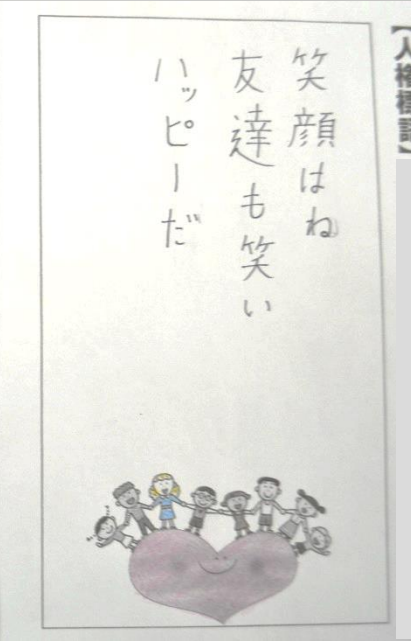 【人権標語】
笑顔はね
友達も笑い
ハッピーだ